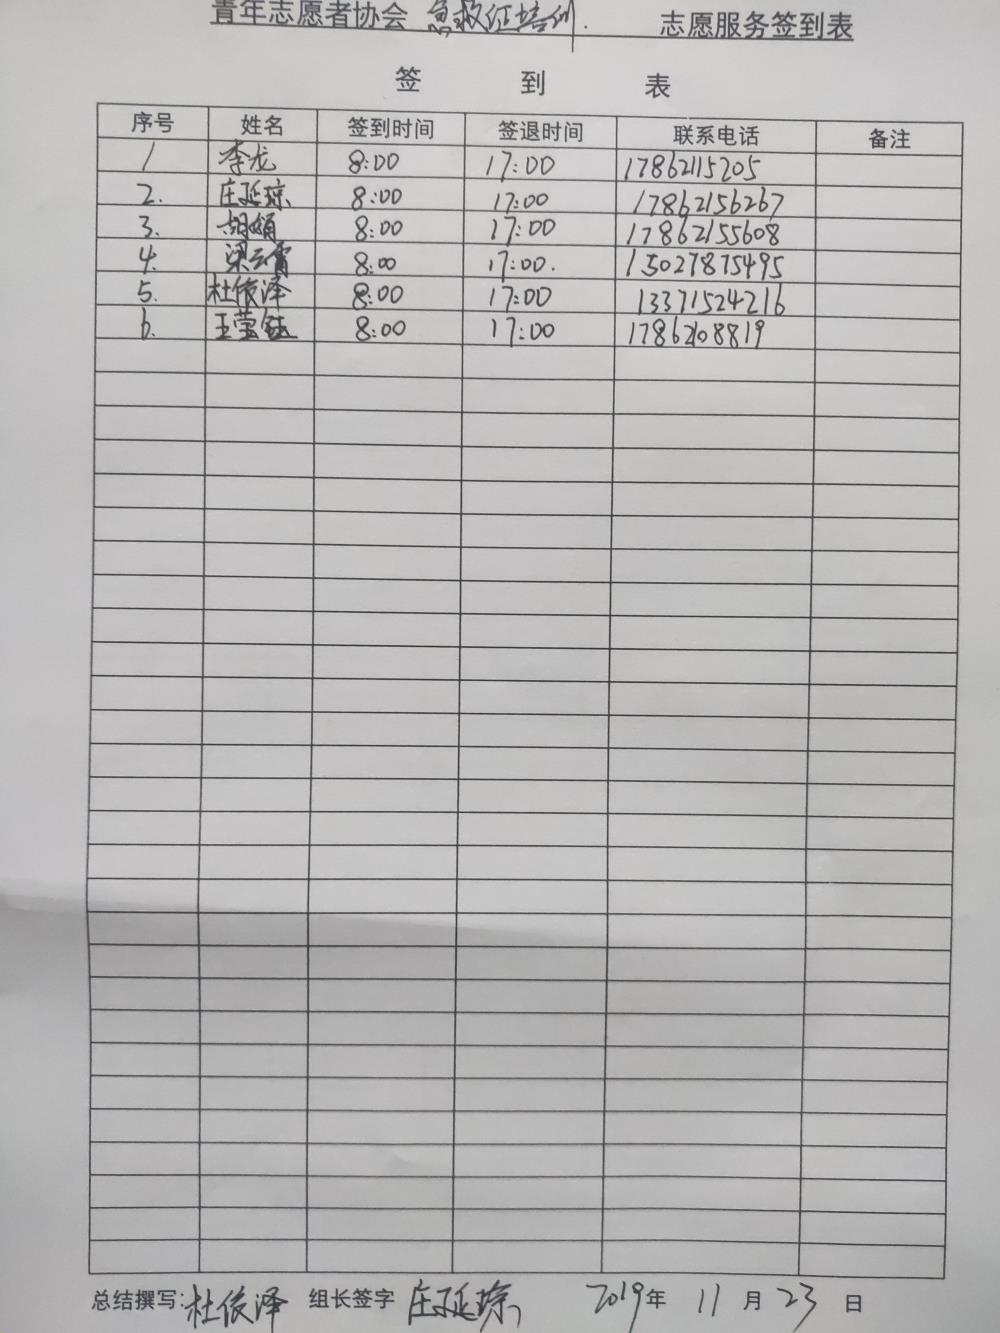 青年志愿者协会 急救证培训. 志愿服务签到表
签 到 表
序号 姓名 签到时间 签退时间 联系电话 备注
1 李龙 8:00 17:00 17862115205
2. 庄延琼 8:00 17:00 17862156267
3. 胡娟 8:00 17:00 17862155608
4. 梁云霄 8:00 17:00. 15027875495
5. 杜俊泽 8:00 17:00 13371524216
6. 王莹钰 8:00 17:00 17862108819
总结撰写:杜俊泽 组长签字 庄延琼 2019年 11 月 23 日